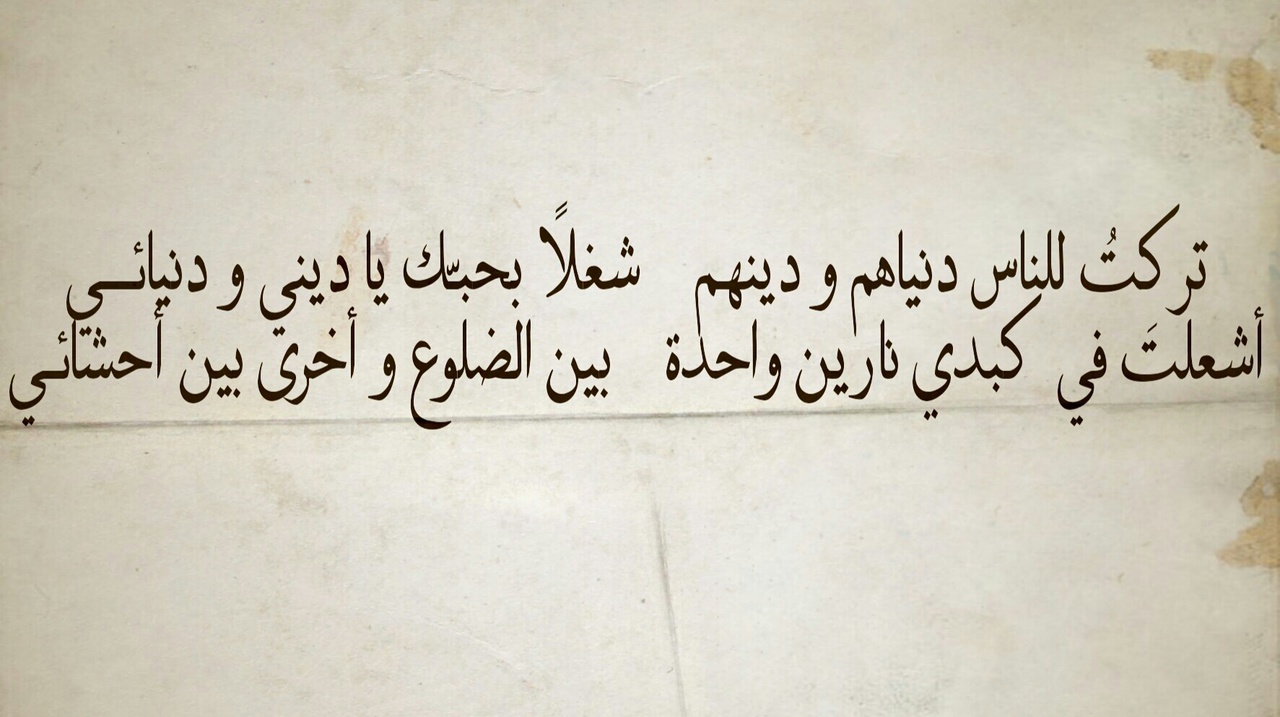 تركتُ للناس دنياهم و دينهم شغلاً بحبّك يا ديني و دنيائـي
أشعلتَ في كبدي نارين واحدة بين الضلوع و أخرى بين أحشائـي